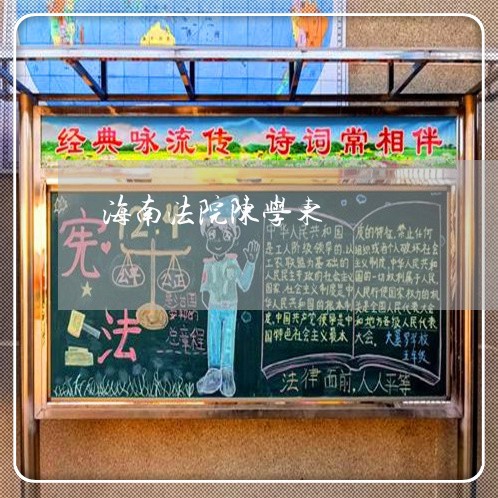 经典咏流传 诗词常相伴
海南法院陳學東
宪法
12.4
公平
公正
总章程
中华人民共和国
是工人阶级领导的,以
工农联盟为基础的
人民民主专政的社会主义
国家,社会主义制度是中
华人民共和国的根本制
度,中国共产党领导是中
国特色社会主义最本
质的特征,禁止任何
组织或者个人破坏社会
主义制度,中华人民共和
国的一切权利属于人民,
人民行使国家权力的机
关是全国人民代表大会
和地方各级人民代表
大会。
五年级
法律面前,人人平等